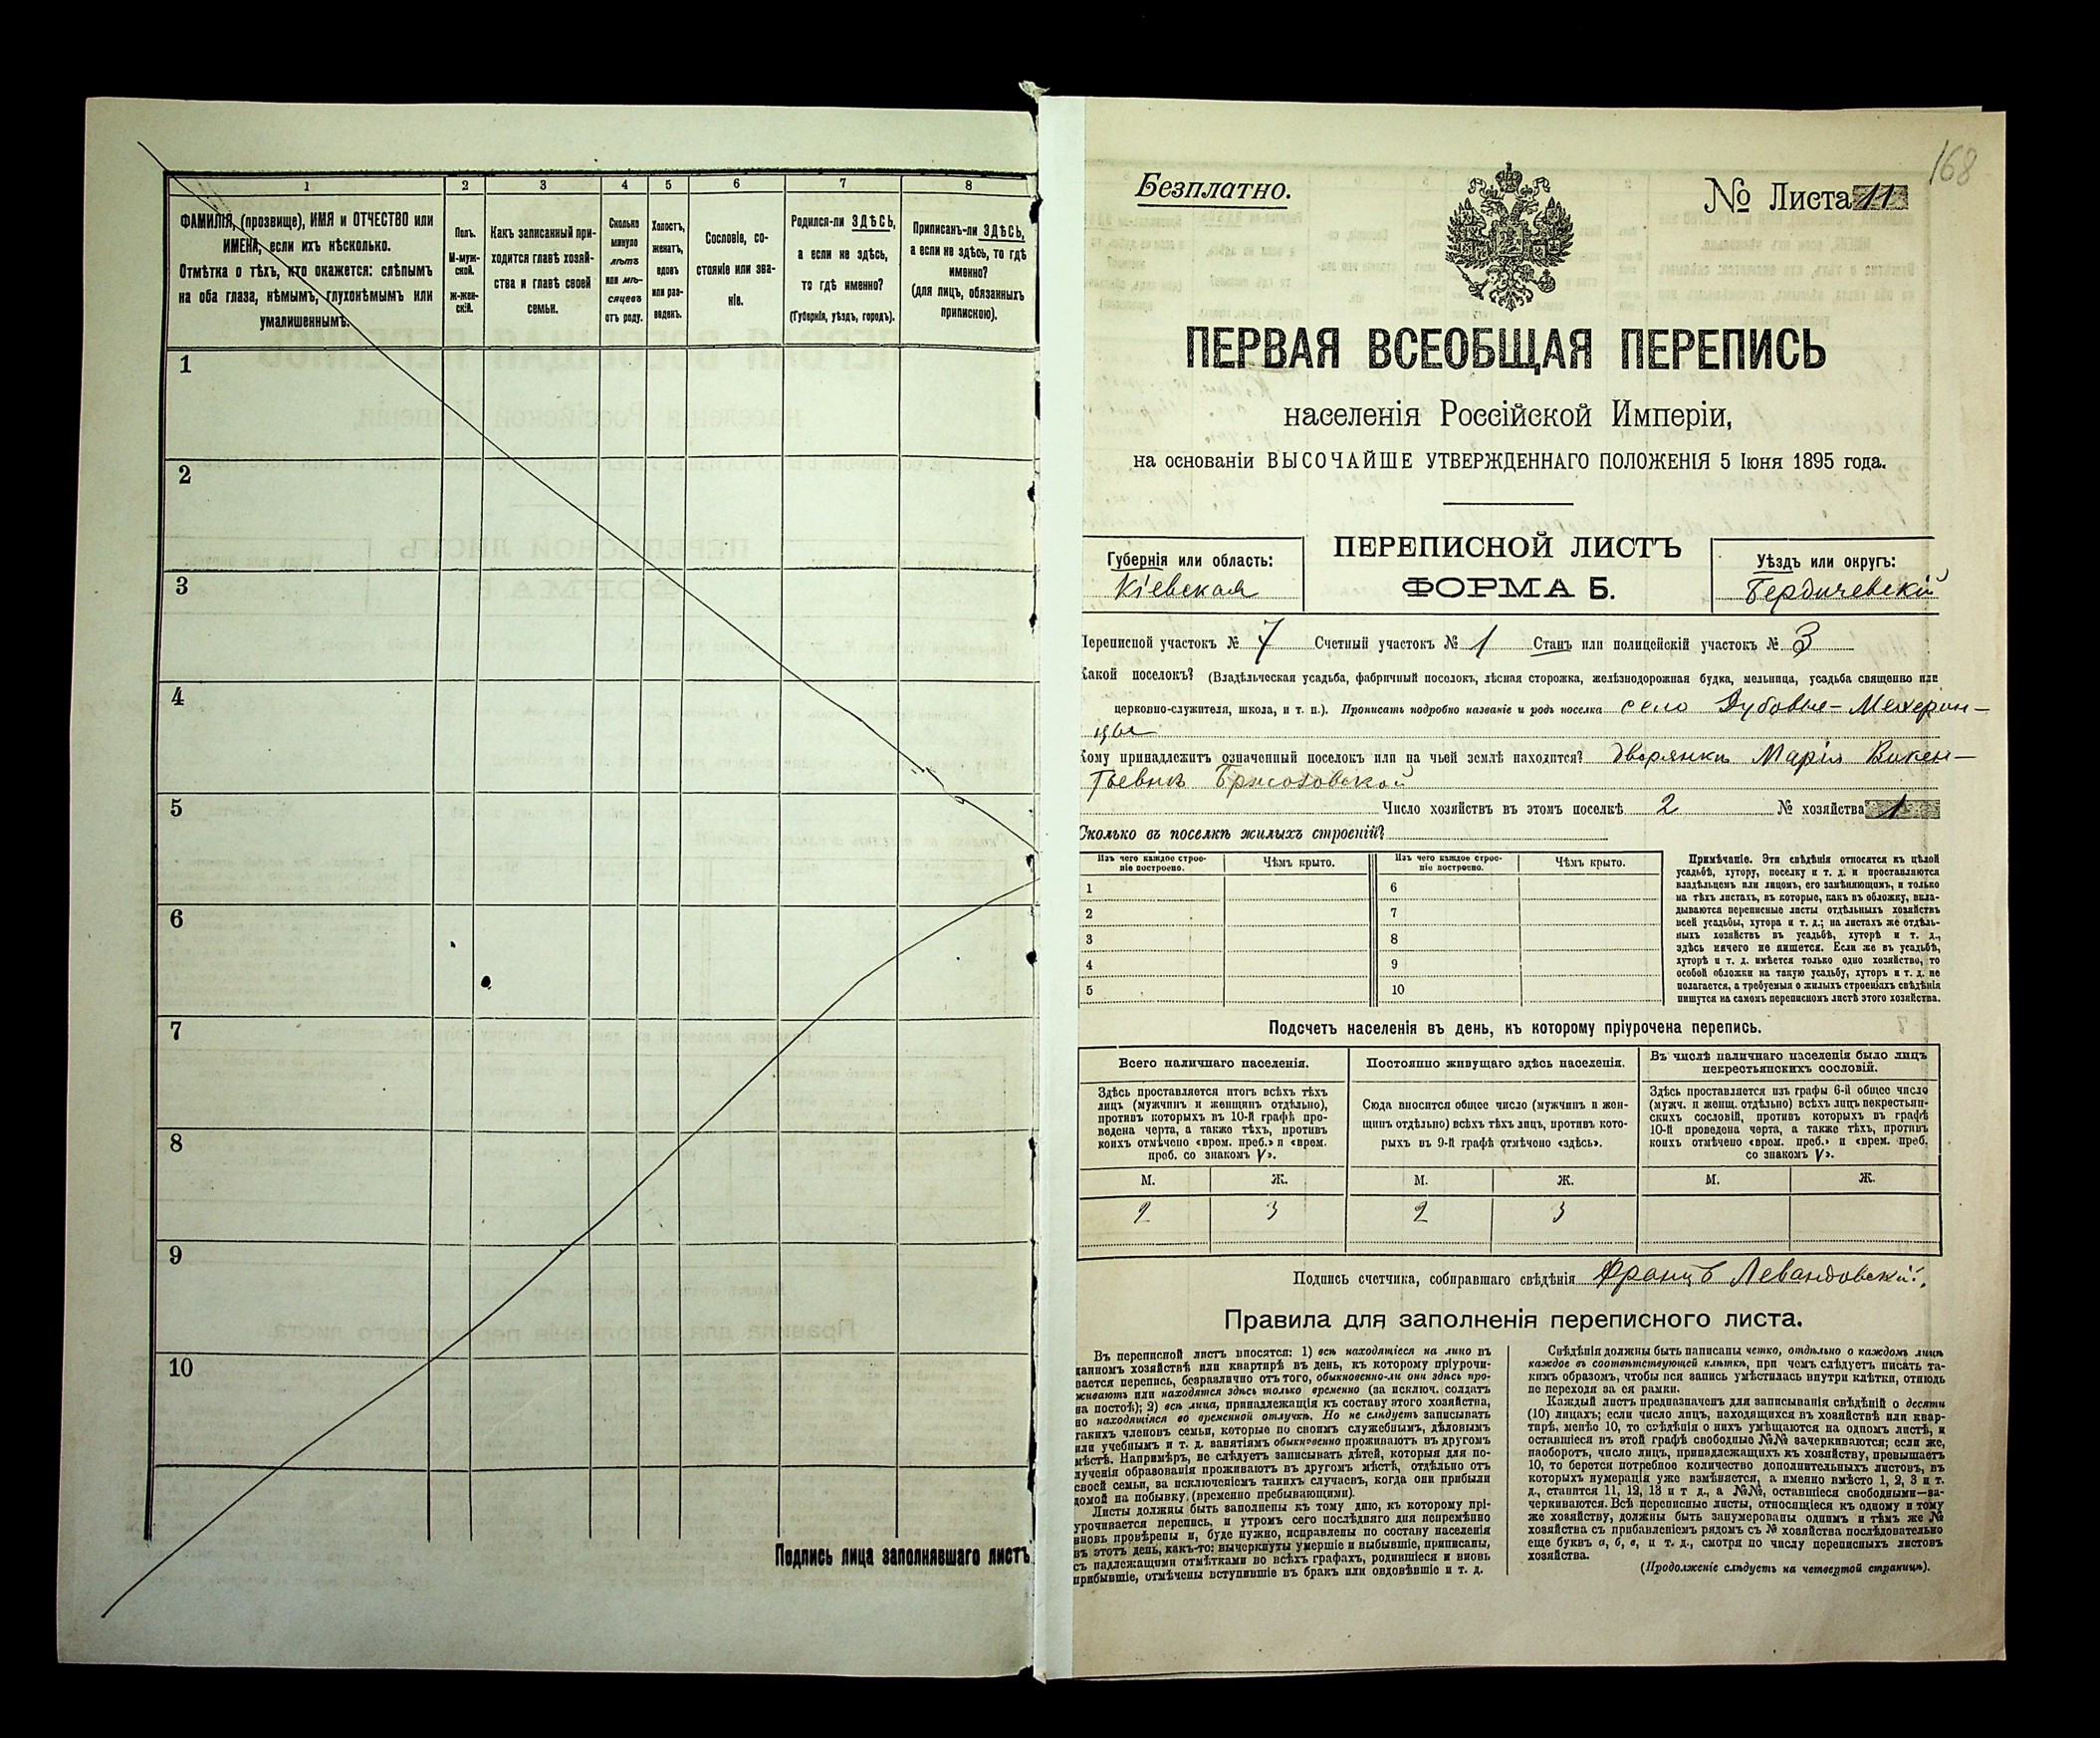 1 2 3 4 5 6 7 8
ФАМИЛІЯ, (прозвище), ИМЯ и ОТЧЕСТВО или
ИМЕНА, если ихъ нѣсколько.
Отмѣтка о тѣхъ, кто окажется: слѣпымъ
на оба глаза, нѣмымъ, глухонѣмымъ или
умалишеннымъ.
Полъ.
М-муж-
ской.
Ж-жен-
скій.
Какъ записанный при-
ходится главѣ хозяй-
ства и главѣ своей
семьи.
Сколько
минуло
лѣтъ
или мѣ-
сяцевъ
отъ роду.
Холостъ,
женатъ,
вдовъ
или раз-
веденъ.
Сословіе, со-
стояніе или зва-
ніе.
Родился-ли ЗДѢСЬ,
а если не здѣсь,
то гдѣ именно?
(Губернія, уѣздъ, городъ).
Приписанъ-ли ЗДѢСЬ,
а если не здѣсь, то гдѣ
именно?
(для лицъ, обязанныхъ
припискою).
1
2
3
4
5
6
7
8
9
10
Подпись лица заполнявшаго листъ
168
Безплатно.
№ Листа 11
ПЕРВАЯ ВСЕОБЩАЯ ПЕРЕПИСЬ
населенія Россійской Имперіи,
на основаніи ВЫСОЧАЙШЕ УТВЕРЖДЕННАГО ПОЛОЖЕНІЯ 5 Іюня 1895 года.
ПЕРЕПИСНОЙ ЛИСТЪ
ФОРМА Б.
Губернія или область:
Кіевская
Уѣздъ или округъ:
Бердичевскій
Переписной участокъ № 7 Счетный участокъ № 1 Станъ или полицейскій участокъ № 3
Какой поселокъ? (Владѣльческая усадьба, фабричный поселокъ, лѣсная сторожка, желѣзнодорожная будка, мельница, усадьба священно или
церковно-служителя, школа, и т. п.). Прописать подробно названіе и родъ поселка село Дубовые-Мехерин-
цы
Кому принадлежитъ означенный поселокъ или на чьей землѣ находится? дворянки Маріи Викен-
тьевны
Число хозяйствъ въ этомъ поселкѣ 2 № хозяйства 1
Сколько въ поселкѣ жилыхъ строеній?
Изъ чего каждое строе-
ніе построено.
Чѣмъ крыто.
Изъ чего каждое строе-
ніе построено.
Чѣмъ крыто.
1 6
2 7
3 8
4 9
5 10
Примѣчаніе. Эти свѣдѣнія относятся къ цѣлой
усадьбѣ, хутору, поселку и т. д. и проставляются
владѣльцемъ или лицомъ, его замѣняющимъ, и только
на тѣхъ листахъ, въ которые, какъ въ обложку, вкла-
дываются переписные листы отдѣльныхъ хозяйствъ
всей усадьбы, хутора и т. д.; на листахъ же отдѣль-
ныхъ хозяйствъ въ усадьбѣ, хуторѣ и т. д.,
здѣсь ничего не пишется. Если же въ усадьбѣ,
хуторѣ и т. д. имѣется только одно хозяйство, то
особой обложки на такую усадьбу, хуторъ и т. д. не
полагается, а требуемыя о жилыхъ строеніяхъ свѣдѣнія
пишутся на самомъ переписномъ листѣ этого хозяйства.
Подсчетъ населенія въ день, къ которому пріурочена перепись.
Всего наличнаго населенія.
Здѣсь проставляется итогъ всѣхъ тѣхъ
лицъ (мужчинъ и женщинъ отдѣльно),
противъ которыхъ въ 10-й графѣ про-
ведена черта, а также тѣхъ, противъ
коихъ отмѣчено «врем. преб.» и «врем.
преб. со знакомъ V».
Постоянно живущаго здѣсь населенія.
Сюда вносится общее число (мужчинъ и жен-
щинъ отдѣльно) всѣхъ тѣхъ лицъ, противъ кото-
рыхъ въ 9-й графѣ отмѣчено «здѣсь».
Въ числѣ наличнаго населенія было лицъ
некрестьянскихъ сословій.
Здѣсь проставляется изъ графы 6-й общее число
(мужч. и женщ. отдѣльно) всѣхъ лицъ некрестьян-
скихъ сословій, противъ которыхъ въ графѣ
10-й проведена черта, а также тѣхъ, противъ
коихъ отмѣчено «врем. преб.» и «врем. преб.
со знакомъ V».
М. Ж. М. Ж. М. Ж.
2 3 2 3
Подпись счетчика, собиравшаго свѣдѣнія Францъ Левандовскій.
Правила для заполненія переписного листа.
Въ переписной листъ вносятся: 1) всѣ находящіеся на лицо въ
данномъ хозяйствѣ или квартирѣ въ день, къ которому пріурочи-
вается перепись, безразлично отъ того, обыкновенно-ли они здѣсь про-
живаютъ или находятся здѣсь только временно (за исключ. солдатъ
на постоѣ); 2) всѣ лица, принадлежащія къ составу этого хозяйства,
но находящіяся во временной отлучкѣ. Но не слѣдуетъ записывать
такихъ членовъ семьи, которые по своимъ служебнымъ, дѣловымъ
или учебнымъ и т. д. занятіямъ обыкновенно проживаютъ въ другомъ
мѣстѣ. Напримѣръ, не слѣдуетъ записывать дѣтей, которыя для по-
лученія образованія проживаютъ въ другомъ мѣстѣ, отдѣльно отъ
своей семьи, за исключеніемъ такихъ случаевъ, когда они прибыли
домой на побывку (временно пребывающими).
Листы должны быть заполнены къ тому дню, къ которому прі-
урочивается перепись, и утромъ сего послѣдняго дня непремѣнно
вновь провѣрены и, буде нужно, исправлены по составу населенія
въ этотъ день, какъ-то: вычеркнуты умершіе и выбывшіе, приписаны,
съ надлежащими отмѣтками во всѣхъ графахъ, родившіеся и вновь
прибывшіе, отмѣчены вступившіе въ бракъ или овдовѣвшіе и т. д.
Свѣдѣнія должны быть написаны четко, отдѣльно о каждомъ лицѣ
каждое въ соотвѣтствующей клѣткѣ, при чемъ слѣдуетъ писать та-
кимъ образомъ, чтобы вся запись умѣстилась внутри клѣтки, отнюдь
не переходя за ея рамки.
Каждый листъ предназначенъ для записыванія свѣдѣній о десяти
(10) лицахъ; если число лицъ, находящихся въ хозяйствѣ или квар-
тирѣ, менѣе 10, то свѣдѣнія о нихъ умѣщаются на одномъ листѣ, и
оставшіеся въ этой графѣ свободные №№ зачеркиваются; если же,
наоборотъ, число лицъ, принадлежащихъ къ хозяйству, превышаетъ
10, то берется потребное количество дополнительныхъ листовъ, въ
которыхъ нумерація уже измѣняется, а именно вмѣсто 1, 2, 3 и т.
д., ставится 11, 12, 13 и т д., а №№, оставшіеся свободными—за-
черкиваются. Всѣ переписные листы, относящіеся къ одному и тому
же хозяйству, должны быть занумерованы однимъ и тѣмъ же №
хозяйства съ прибавленіемъ рядомъ съ № хозяйства послѣдовательно
еще буквъ а, б, в, и т. д., смотря по числу переписныхъ листовъ
хозяйства.
(Продолженіе слѣдуетъ на четвертой страницѣ).